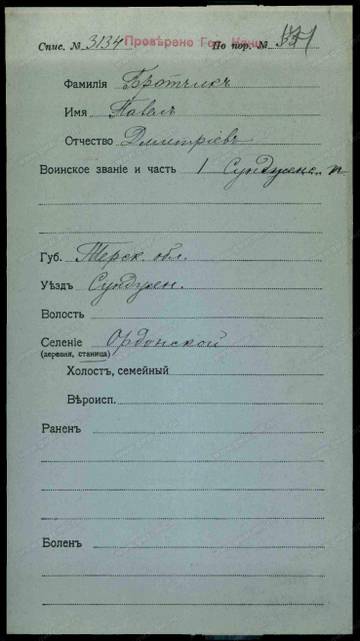 Спис. № 3134 Провѣрено По пор. №
Фамилія Братчикъ
Имя Павелъ
Отчество Дмитріевъ
Воинское званіе и часть 1 Сундженс. п
Губ. Терск. обл.
Уѣздъ Сунджен.
Волость
Селеніе Ордонской
(деревня, станица)
Холостъ, семейный
Вѣроисп.
Раненъ
Боленъ